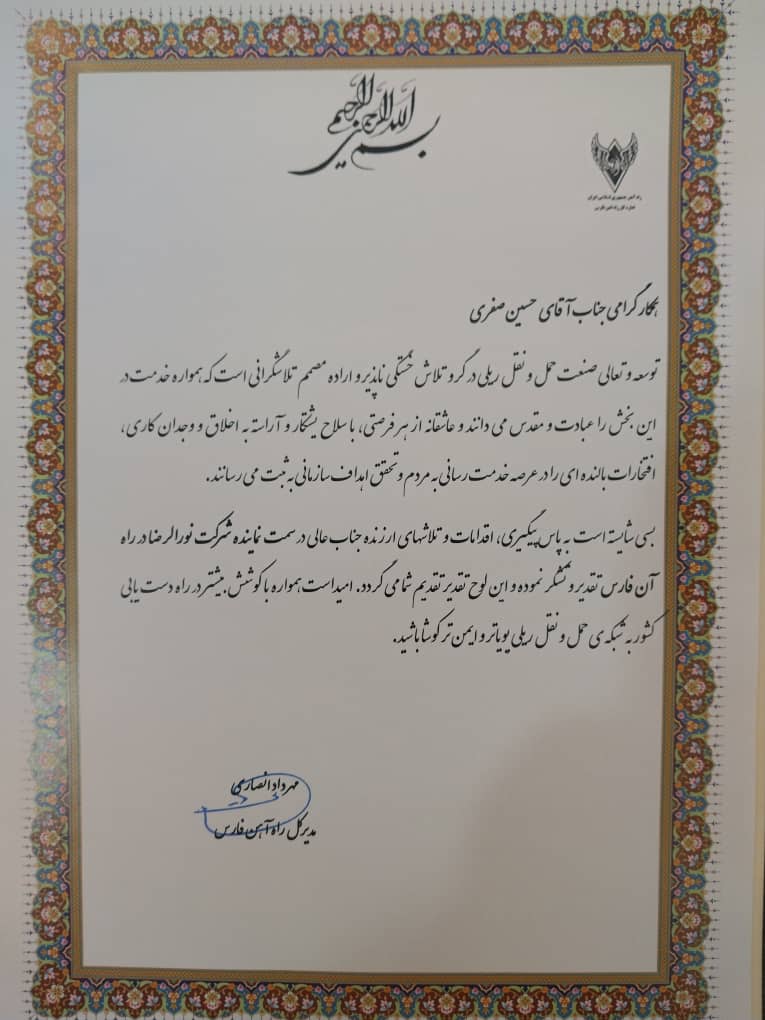 بسم الله الرحمن الرحیم
راه آهن جمهوری اسلامی ایران
اداره کل راه آهن فارس
همکار گرامی جناب آقای حسین صفری
توسعه و تعالی صنعت حمل و نقل ریلی در گرو تلاش خستگی ناپذیر و اراده مصمم تلاشگرانی است که همواره خدمت در
این بخش را عبادت و مقدس می دانند و عاشقانه از هر فرصتی، با سلاح پشتکار و آراسته به اخلاق و وجدان کاری،
افتخارات بالنده ای را در عرصه خدمت رسانی به مردم و تحقق اهداف سازمانی به ثبت می رسانند.
بسی شایسته است به پاس پیگیری، اقدامات و تلاشهای ارزنده جناب عالی در سمت نماینده شرکت نورالرضا در راه
آن فارس تقدیر و تشکر نموده و این لوح تقدیر تقدیم شما می گردد. امید است همواره با کوشش بیشتر در راه دست یابی
کشور به شبکه ی حمل و نقل ریلی پویاتر و ایمن تر کوشا باشید.
مهرداد انصاری
مدیرکل راه آهن فارس